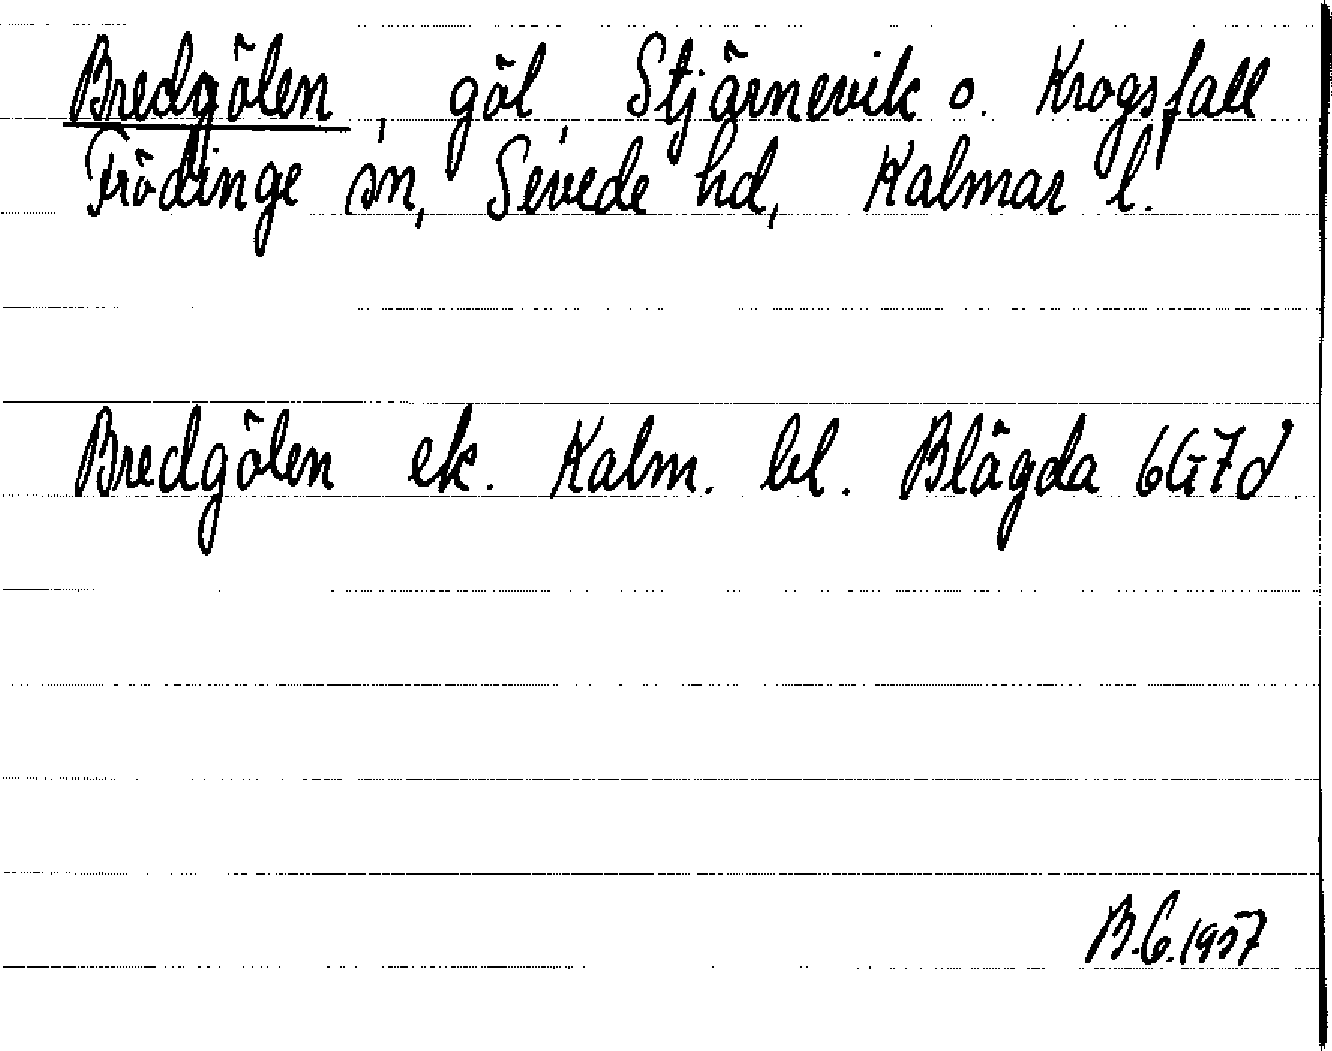 Bredgölen, göl, Stjärnevik o. Krogsfall
Frödinge sn, Sevede hd, Kalmar l.
Bredgölen ek. Kalm. bl. Blägda 6G7d
B.G. 1957